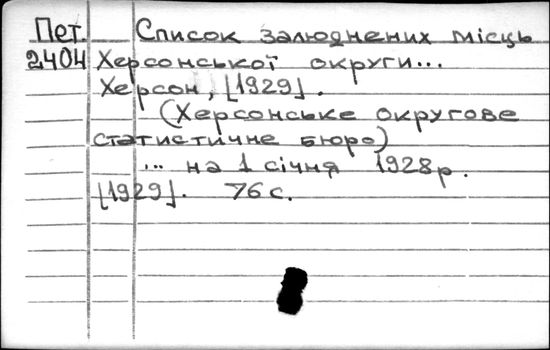 Пет. Список залюднених місць
2404 Херсонської округи...
Херсон, [1929].
(Херсонське округове
статистичне бюро)
... на 1 січня 1928 р.
[1929]. 76 с.